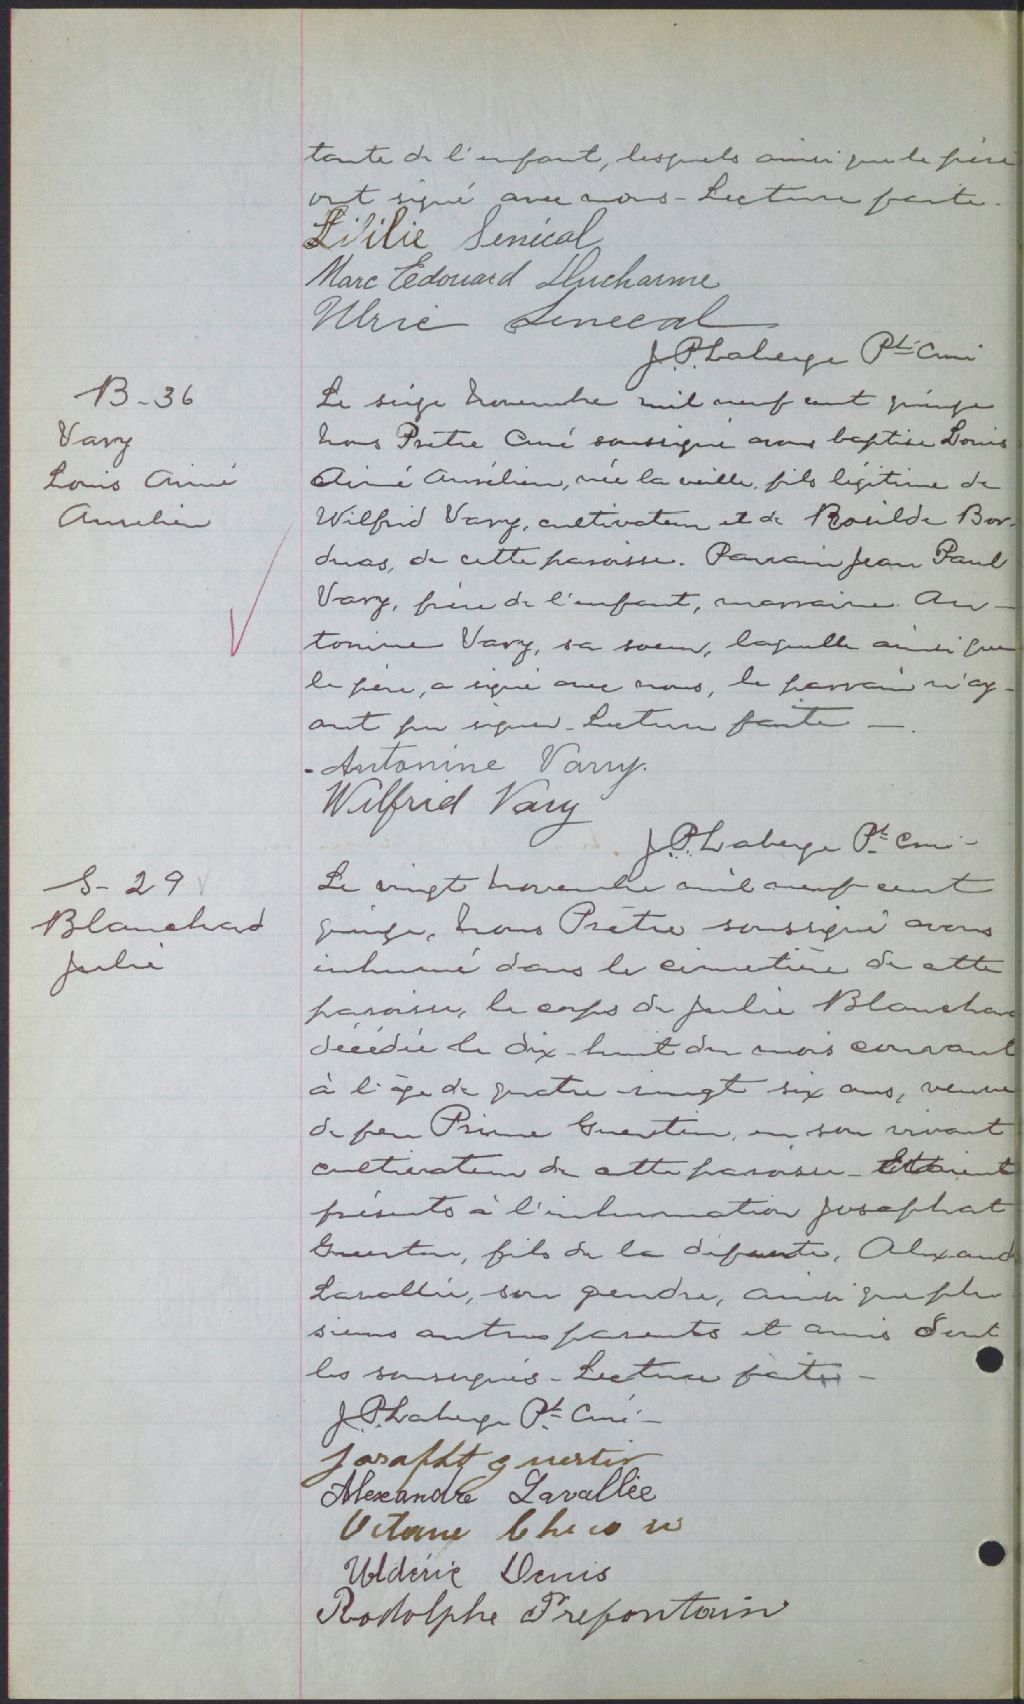 tante de l'enfant, lesquels ainsi que le père
ont signé avec nous - Lecture faite.
Lilie Senécal
Marc Edouard Ducharme
Ulric Senecal
J.P. Laberge Ptre Curé
B-36
Vary
Louis Aimé
Aurelien
Le seize Novembre mil neuf cent quinze
Nous Prêtre Curé soussigné avons baptisé Louis
Aimé Aurélien, née la veille, fils légitime de
Wilfrid Vary, cultivateur et de Rosilda Bor-
duas, de cette paroisse. Parrain Jean Paul
Vary, frère de l'enfant, marraine An-
tonine Vary, sa soeur, laquelle ainsi que
le père, a signé avec nous, le parrain n'ay-
ant pu signer - Lecture faite —.
Antonine Varry.
Wilfrid Vary
J.P. Laberge Pt. Curé -
S- 29
Blanchard
Julie
Le vingt Novembre mil neuf cent
quinze, Nous Prêtre soussigné avons
inhumé dans le cimetière de cette
paroisse, le corps de Julie Blanchard
décédée le dix-huit du mois courant
à l'âge de quatre vingt six ans, veuve
de feu Prime Guertin, en son vivant
cultivateur de cette paroisse - Etaient
présents à l'inhumation Josaphat
Guertin, fils de la défunte, Alexandre
Lavallée, son gendre, ainsi que plu
sieurs autres parents et amis dont
les soussignés - Lecture faite -
J.P. Laberge Pt. Curé -
Josapht guertin
Alexandre Lavallée
Chicoin
Uldéric Denis
Rodolphe Prefontain